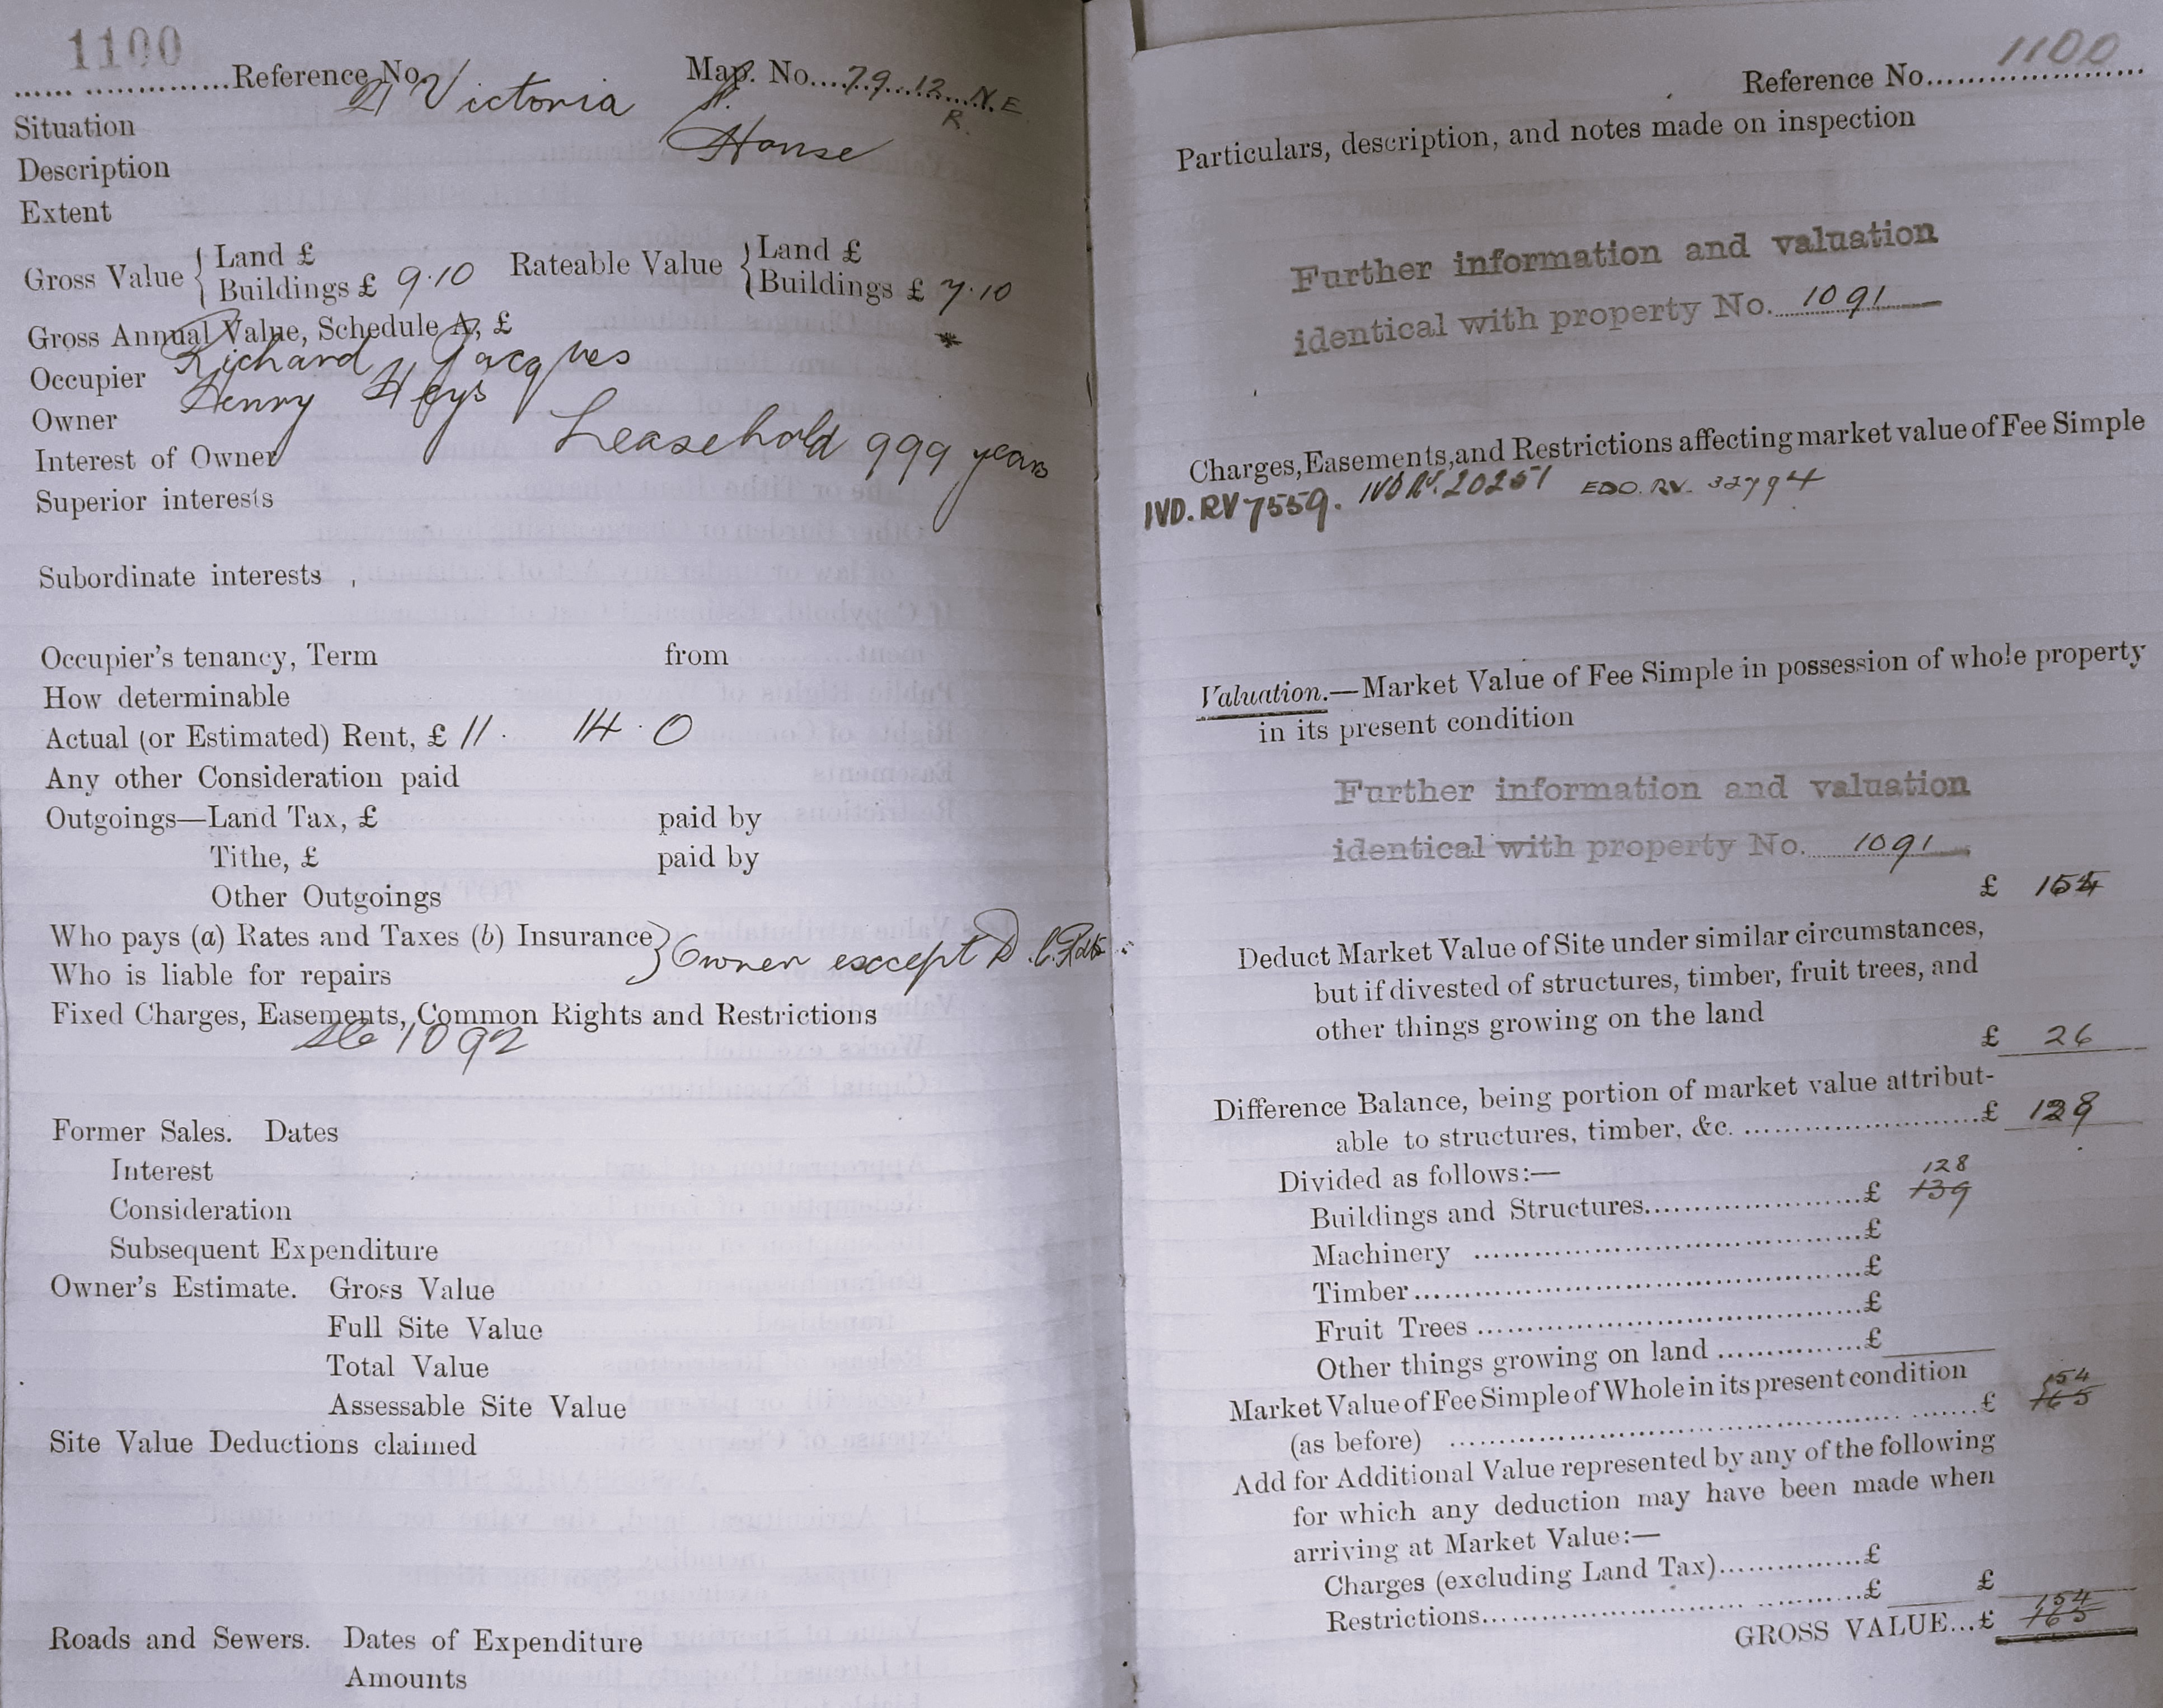 1100
Reference No. Map. No. 79.12 N.E
R.
Situation 21 Victoria
Description House
Extent
Gross Value { Land £
Buildings £ 9.10
Rateable Value { Land £
Buildings £ 7.10
Gross Annual Value, Schedule A, £
*
Occupier Richard Jacques
Owner Henry Heys
Interest of Owner Leasehold 999 years
Superior interests
Subordinate interests
Occupier's tenancy, Term from
How determinable
Actual (or Estimated) Rent, £ 11. 14.0
Any other Consideration paid
Outgoings—Land Tax, £ paid by
Tithe, £ paid by
Other Outgoings
Who pays (a) Rates and Taxes (b) Insurance } Owner except D.C.
Who is liable for repairs
Fixed Charges, Easements, Common Rights and Restrictions
1092
Former Sales. Dates
Interest
Consideration
Subsequent Expenditure
Owner's Estimate. Gross Value
Full Site Value
Total Value
Assessable Site Value
Site Value Deductions claimed
Roads and Sewers. Dates of Expenditure
Amounts
Reference No. 1100
Particulars, description, and notes made on inspection
Further information and valuation
identical with property No. 1091
Charges, Easements, and Restrictions affecting market value of Fee Simple
IVD. RV 7559. IVD RV. 20251 EDO. RV. 32794
Valuation.—Market Value of Fee Simple in possession of whole property
in its present condition
Further information and valuation
identical with property No. 1091
£ 154
Deduct Market Value of Site under similar circumstances,
but if divested of structures, timber, fruit trees, and
other things growing on the land
£ 26
Difference Balance, being portion of market value attribut-
able to structures, timber, &c. £ 128
Divided as follows:—
128
Buildings and Structures £ 139
Machinery £
Timber £
Fruit Trees £
Other things growing on land £
Market Value of Fee Simple of Whole in its present condition
154
(as before) £ 165
Add for Additional Value represented by any of the following
for which any deduction may have been made when
arriving at Market Value:—
Charges (excluding Land Tax) £
Restrictions £ £
154
GROSS VALUE...£ 165